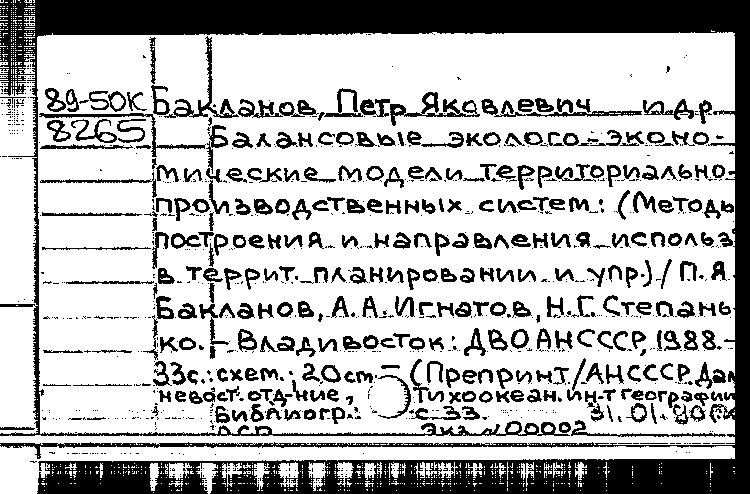 89-50К Бакланов, Петр Яковлевич и др
8265 Балансовые эколого-эконо-
мические модели территориально-
производственных систем: (Методы
построения и направления использ
в террит. планировании и упр.) / П.Я.
Бакланов, А.А. Игнатов, Н.Г. Степань-
ко. - Владивосток: ДВО АН СССР, 1988.-
33с.: схем.; 20см - (Препринт/АН СССР. Дал
невост. отд-ние, Тихоокеан. ин-т географии
Библиогр.: с. 33. 31.01.90
ДСП Экз N 00002